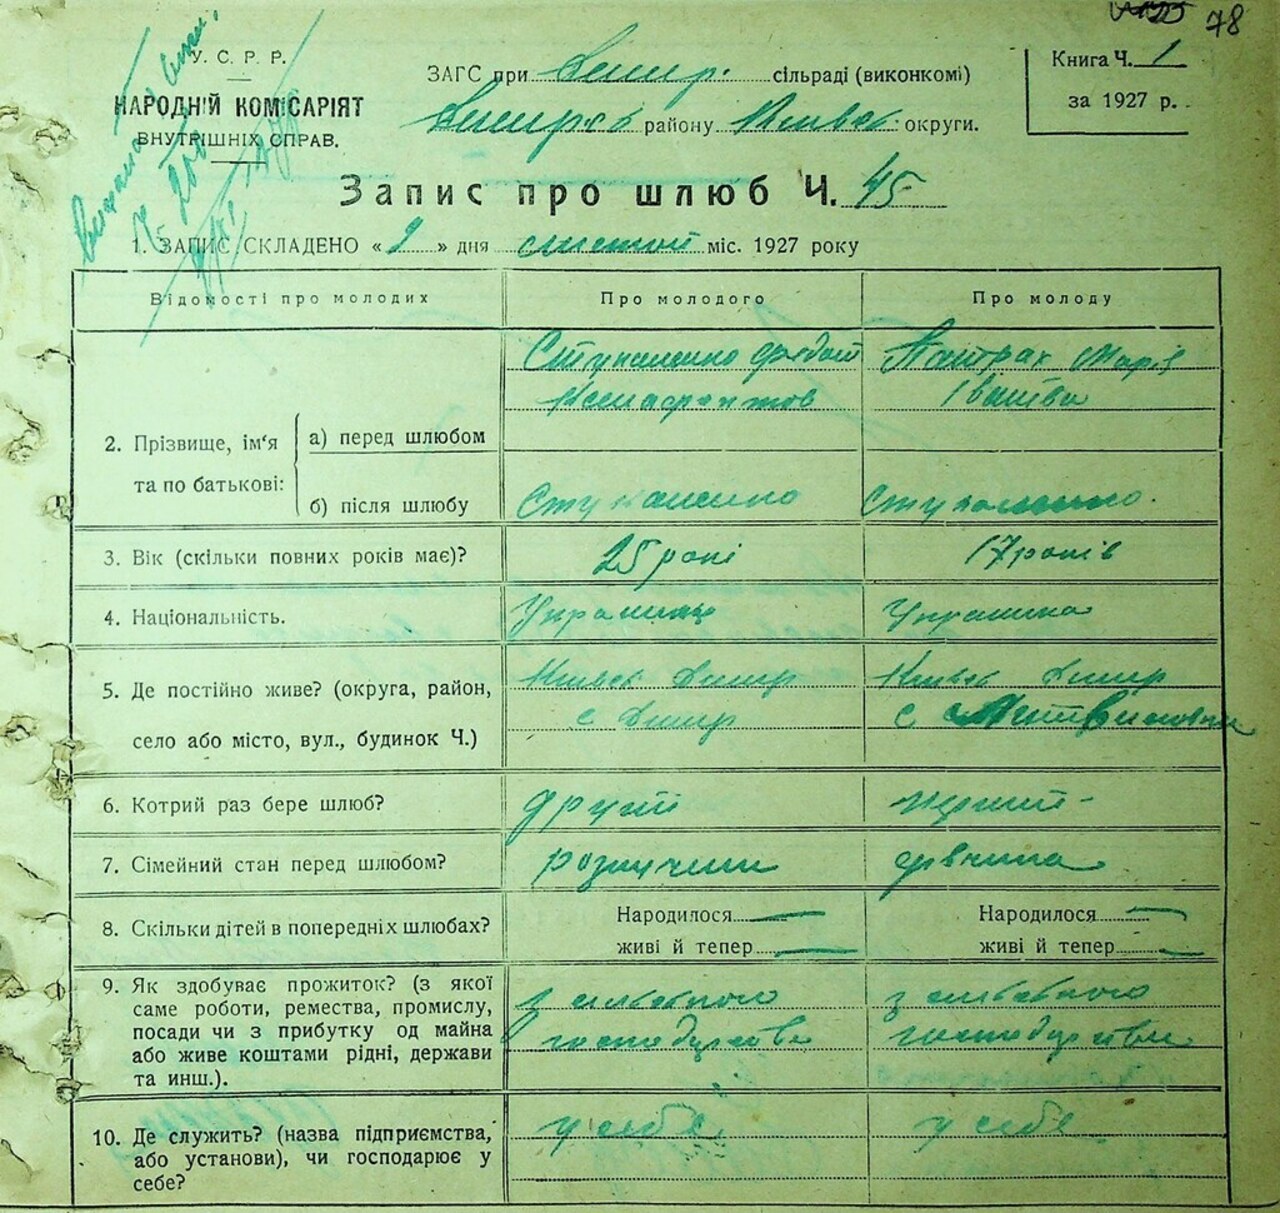 78
У. С. Р. Р.
НАРОДНІЙ КОМІСАРІЯТ
ВНУТРІШНІХ СПРАВ.
ЗАГС при Димир. сільраді (виконкомі)
Димирск району Київськ. округи.
Книга Ч. 1
за 1927 р.
Запис про шлюб Ч. 45
1. ЗАПИС СКЛАДЕНО « 9 » дня міс. 1927 року
Відомості про молодих
Про молодого
Про молоду
2. Прізвище, ім‘я
та по батькові:
а) перед шлюбом
б) після шлюбу
Марія
Іванівна
3. Вік (скільки повних років має)?
25 рокі
17 років
4. Національність.
Українець
Українка
5. Де постійно живе? (округа, район,
село або місто, вул., будинок Ч.)
Київськ Димир
с Димир
Київськ Димир
с
6. Котрий раз бере шлюб?
другий
перший
7. Сімейний стан перед шлюбом?
дівчина
8. Скільки дітей в попередніх шлюбах?
Народилося —
живі й тепер —
Народилося —
живі й тепер —
9. Як здобуває прожиток? (з якої
саме роботи, ремества, промислу,
посади чи з прибутку од майна
або живе коштами рідні, держави
та инш.).
з сільського
господарства
з сільського
господарства
10. Де служить? (назва підприємства,
або установи), чи господарює у
себе?
у себе
у себе